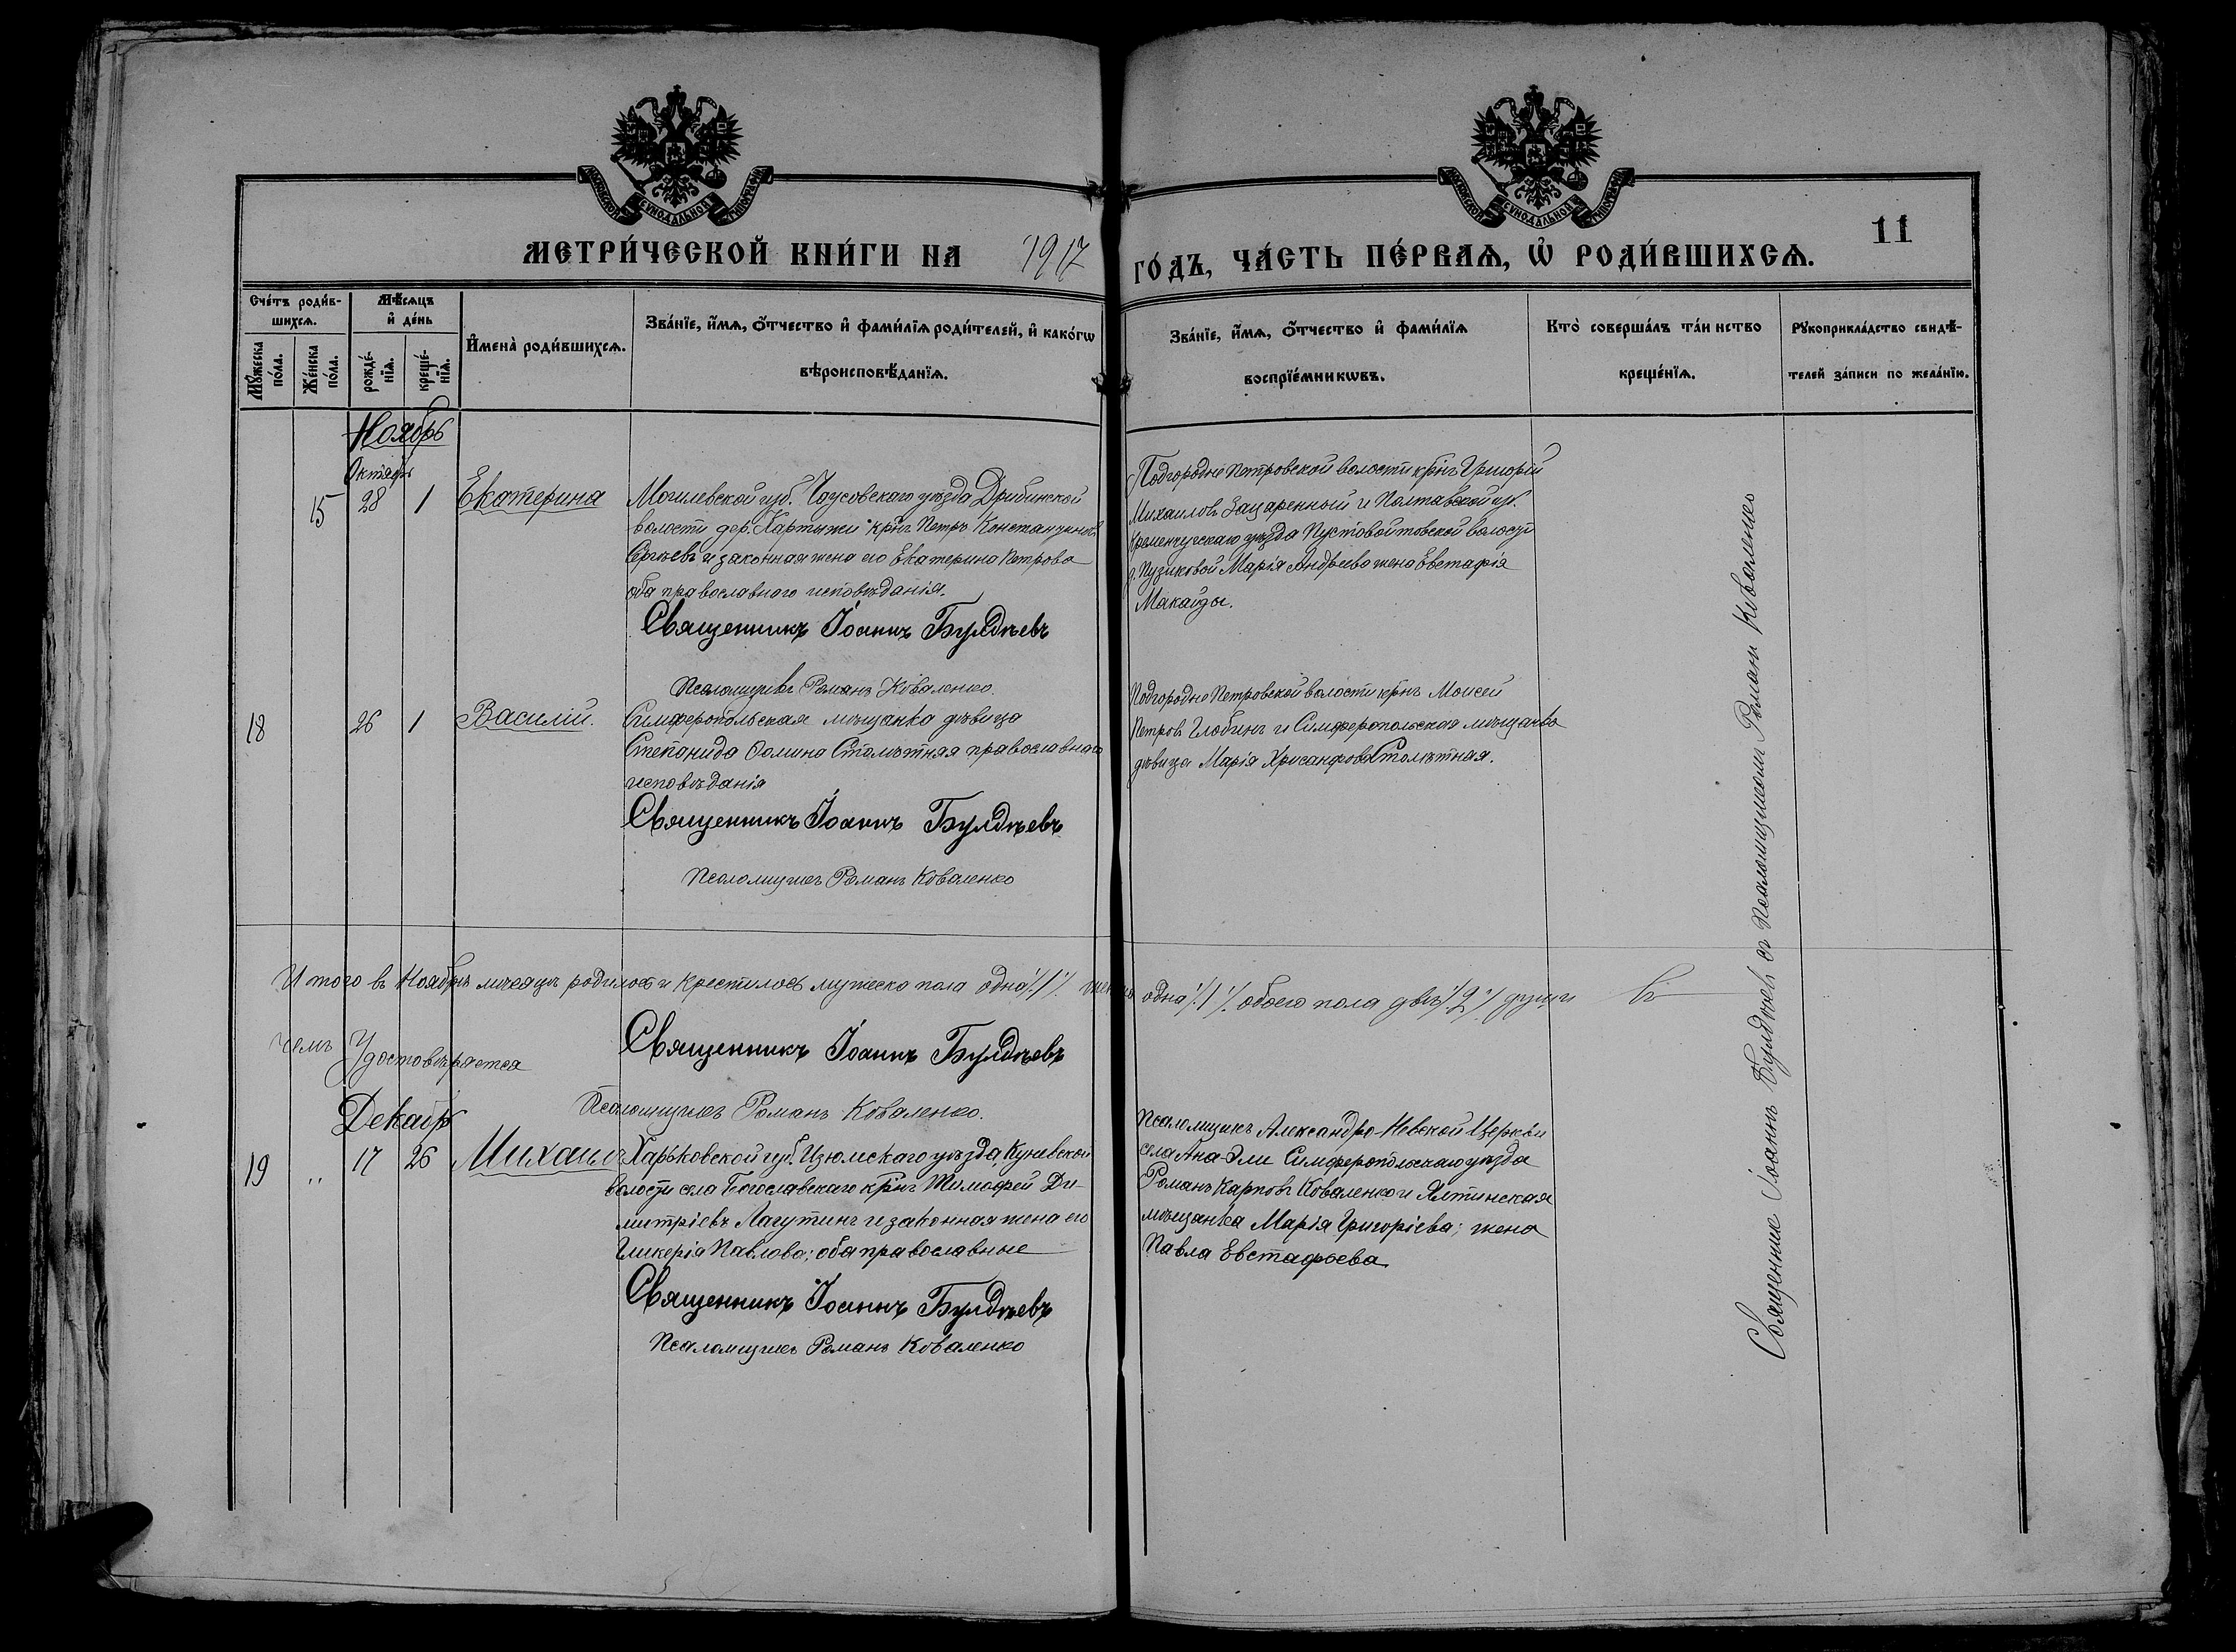 МЕТРИ́ЧЕСКОЙ КНИ́ГИ НА 1917
ГО́ДЪ, ЧА́СТЬ ПЕ́РВАѦ, Ѡ҆ РОДИ́ВШИХСѦ.
11
Сче́тъ роди́в-
шихсѧ.
Мѣ́сѧцъ
и҆ де́нь
Мꙋ́жеска
по́ла.
Же́нска
по́ла.
рожде́-
нїѧ.
креще́-
нїѧ.
И҆мена̀ роди́вшихсѧ.
Зва́нїе, и҆́мѧ, ѻ҆́тчество и҆ фами́лїѧ роди́телей, и҆ како́гѡ
вѣроисповѣ́данїѧ.
Зва́нїе, и҆́мѧ, ѻ҆́тчество и҆ фами́лїѧ
воспрїе́мникѡвъ.
Кто̀ соверша́лъ та́инство
креще́нїѧ.
Рꙋкоприкла́дство свидѣ́-
телей за́писи по жела́нїю.
Ноябрь
Октябрь
15 28 1 Екатерина
Могилевской губ. Чаусовскаго уѣзда Дрибинской
волости дер. Картыжи крнъ Петръ Константиновъ
Сергѣевъ и законная жена его Екатерина Петрова
оба православного исповѣданія.
Священникъ Іоаннъ Булдѣевъ
Псаломщикъ Романъ Коваленко.
Подгородне Петровской волости крнъ Григорій
Михаиловъ Зацаренный и Полтавской губ.
Кременчугскаго уѣзда Пустовойтовской волости
д. Пузиковой Марія Андреева жена Евстафія
Макайды.
18 26 1 Василій.
Симферопольская мѣщанка дѣвица
Степанида Столѣтная православнаго
исповѣданія
Священникъ Іоаннъ Булдѣевъ
Псаломщикъ Романъ Коваленко
Подгородне Петровской волости крнъ Моисей
Петровъ Глобинъ и Симферопольская мѣщанка
дѣвица Марія Хрисанфова Столѣтная.
Итого въ Ноябрѣ мѣсяцѣ родилось и крестилось мужеско пола одна /1/. одна /1/. обоего пола двѣ /2/
чемъ Удостовѣряется
Священникъ Іоаннъ Булдѣевъ
Псаломщикъ Романъ Коваленко.
Декабрь
19 " 17 26 Михаилъ
Харьковской губ. Изюмскаго уѣзда, Куньевской
волости села Богославскаго крнъ Тимофей Ди-
митріевъ Лагутинъ и законная жена его
Гликерія Павлова; оба православные
Священникъ Іоаннъ Булдѣевъ
Псаломщикъ Романъ Коваленко
Псаломщикъ Александро-Невской Церкви
села Ана-Эли Симферопольскаго уѣзда
Романъ Карповъ Коваленко и Ялтинская
мѣщанка Марія Григоріева; жена
Павла Евстафьева
Священник Іоаннъ Булдѣев съ Псаломщиком Роман Коваленко